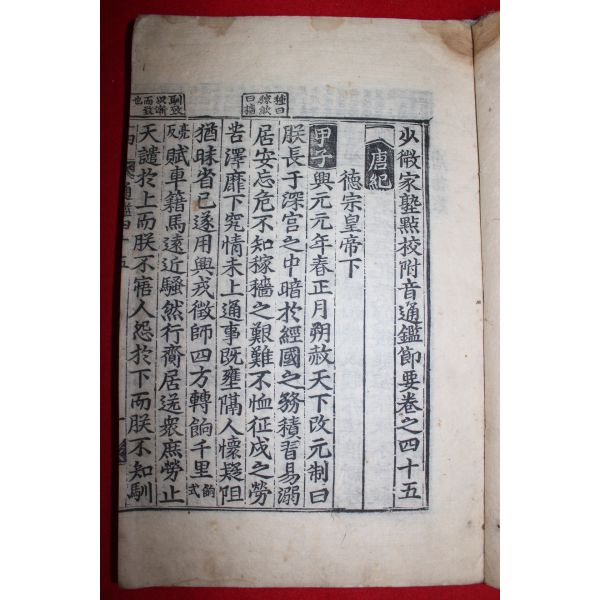 少微家塾點校附音通鑑節要卷之四十五
唐紀
德宗皇帝下
甲子興元元年春正月朔赦天下改元制曰
朕長于深宮之中暗於經國之務積習易溺
居安忘危不知稼穡之艱難不恤征戍之勞
苦澤靡下究情未上通事既壅隔人懷疑阻
猶昧省己遂用興戎徵師四方轉餉千里餉式
亮反賦車籍馬遠近騷然行齎居送衆庶勞止
天譴於上而朕不寤人怨於下而朕不知馴
種曰
稼斂
曰穡
馴致
以漸
而致
也
通鑑四十五